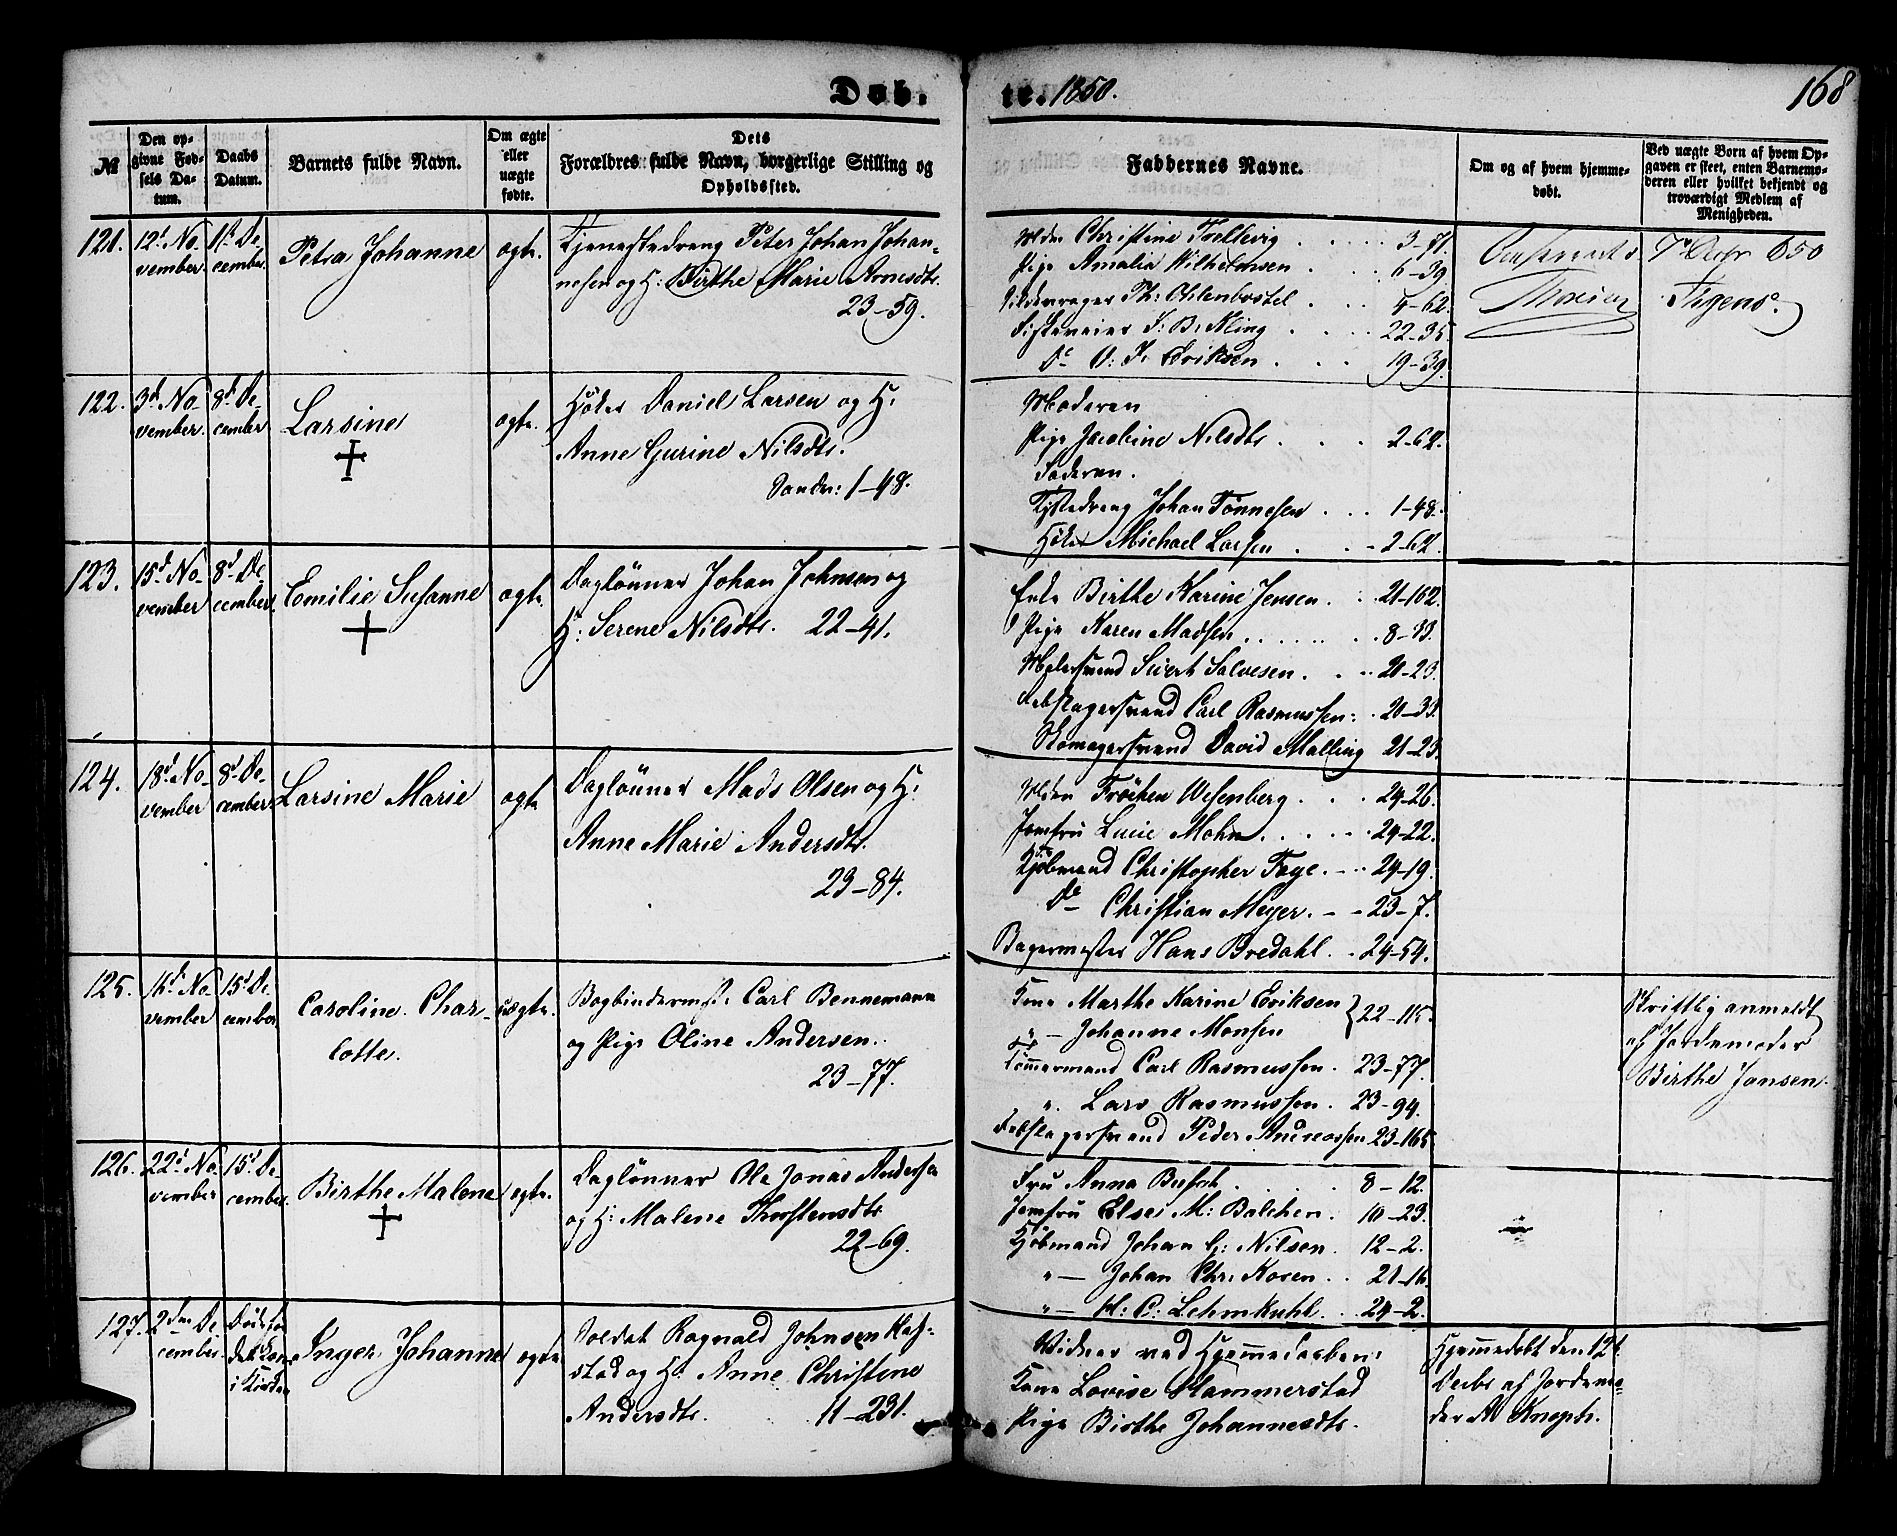 Døb-
te. 1850.
168
№
Den op-
givne Fød-
sels Da-
tum.
Daabs
Datum.
Barnets fulde Navn.
Om ægte
eller
uægte
fødte.
Dets
Forældres fulde Navn, borgerlige Stilling og
Opholdssted.
Faddernes Navne.
Om og af hvem hjemme-
døbt.
Ved uægte Børn af hvem Op-
gaven er skeet, enten Barnemo-
deren eller hvilket bekjendt og
troværdigt Medlem af
Menigheden.
121.
12t No-
vember
1t De-
cember
Petra Johanne
ægte.
Tjenestedreng Peter Johan Johan-
nesen og H: Birthe Marie Arnesdtr.
23-59.
Mdm Christine Tvellevig 3-71.
Pige Amalia Wilhelmsen 6-39.
Th: Ohlenbostel 4-62.
J: B: Kling 22-35.
Do O: J. Eriksen 19-39.
7de Decbr 850
122.
3d No-
vember
8d De-
cember
Larsine
ægte.
Høker Daniel Larsen og H:
Anne Gurine Nilsdtr.
Sandv: 1-48.
Moderen
Pige Jacobine Nilsdtr 2-62.
Faderen.
Johan Tønnesen 1-48.
Høker Michael Larsen 2-62.
123.
15d No-
vember
8d De-
cember
Emilie Susanne
ægte.
Daglønner Johan Johnsen og
H: Serene Nilsdtr. 22-41.
Enke Birthe Karine Jensen. 21-162.
Pige Karen Madsen 8-33.
Sivert Salvesen. 20-23.
Rebslagersvend Carl Rasmussen: 20-33.
Skomagersvend David Malling 21-23.
124.
18d No-
vember
8d De-
cember
Larsine Marie
ægte
Daglønner Mads Olsen og H:
Anne Marie Andersdtr.
23-84.
Frøchen Wesenberg. 24-26.
Jomfru Lucie Mohn. 24-22.
Kjøbmand Christopher Faye. 24-19.
Do Christian Meyer. 23-7.
Bagermester Hans Bredahl. 24-54.
125.
16d No-
vember
15d De-
cember
Caroline Char-
lotte.
uægte.
Bogbinderms. Carl Bennemann
og Pige Oline Andersen.
23-77.
Kone Marthe Karine Eriksen
" - Johanne Monsen } 22-115.
Tømmermand Carl Rasmussen. 23-77.
" Lars Rasmussen. 23-94.
Rebslagersvend Peder Andreassen 23-165.
Skriftlig anmeldt
af Jordemoder
Birthe Jansen.
126.
22d No-
vember
15d De-
cember
Birthe Malene
ægte.
Daglønner Ole Jonas Andersen
og H: Malene Thorstensdtr
22-69.
Fru Anna Busch 8-12.
Jomfru Elses M: Balchen. 10-23.
Kjøbmand Johan G: Nilsen. 12-2.
" - Johan Chr: Koren. 21-16.
" - H: C: Lehmkuhl. 24-2.
127.
2den De-
cember
Døde før
det kom
i Kirken
Inger Johanne
ægte
Soldat Ragnald Johnsen Haf-
stad og H: Anne Christine
Andersdtr. 11-231.
Vidner ved Hjemmedaaben:
Kone Lovise Hammerstad
Pige Birthe Johannesdtr.
Hjemmedøbt den 12t
Decbr af Jordemo-
der A Knoph.